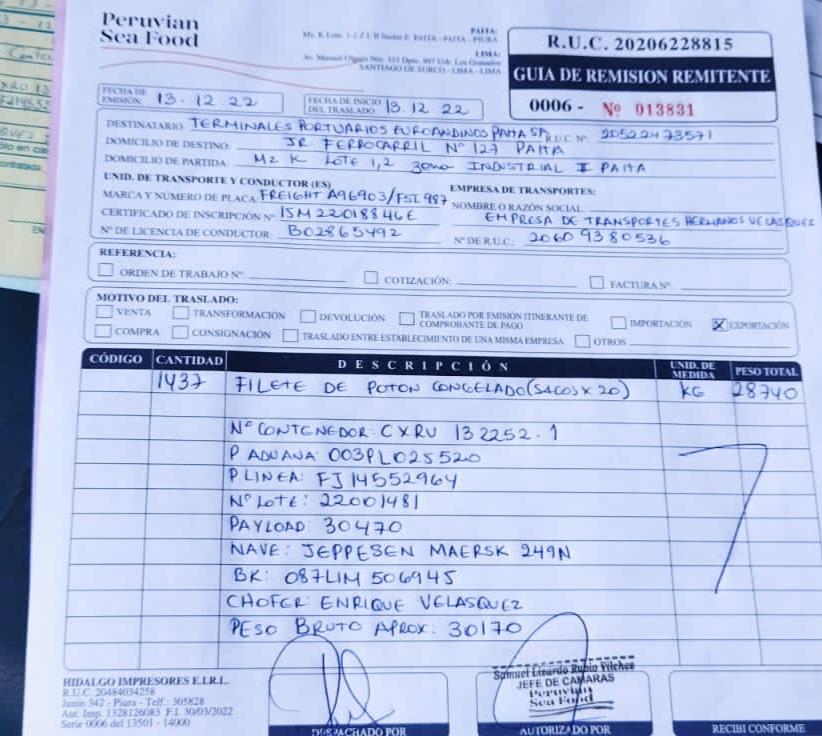 Peruvian
Sea Food
PAITA:
Mz. K Lote. 1-2 Z.I. II Sector E PAITA - PAITA - PIURA
LIMA:
Av. Manuel Olguin Nro. 325 Dpto. 907 Urb. Los Granados
SANTIAGO DE SURCO - LIMA - LIMA
R.U.C. 20206228815
GUIA DE REMISION REMITENTE
0006 - Nº 013831
FECHA DE EMISIÓN: 13.12.22
FECHA DE INICIO DEL TRASLADO: 13.12.22
DESTINATARIO: TERMINALES PORTUARIOS EUROANDINOS PAITA SA R.U.C. Nº: 20522473571
DOMICILIO DE DESTINO: JR. FERROCARRIL Nº 127 PAITA
DOMICILIO DE PARTIDA: Mz K LOTE 1,2 zona INDUSTRIAL II PAITA
UNID. DE TRANSPORTE Y CONDUCTOR (ES)
MARCA Y NÚMERO DE PLACA: FREIGHT A96903/F5I987
CERTIFICADO DE INSCRIPCIÓN Nº 15M22018846E
Nº DE LICENCIA DE CONDUCTOR: B02865492
EMPRESA DE TRANSPORTES:
NOMBRE O RAZÓN SOCIAL:
EMPRESA DE TRANSPORTES HERMANOS VELASQUEZ
Nº DE R.U.C: 20609380536
REFERENCIA:
ORDEN DE TRABAJO Nº COTIZACIÓN: FACTURA Nº
MOTIVO DEL TRASLADO:
VENTA TRANSFORMACIÓN DEVOLUCIÓN TRASLADO POR EMISIÓN ITINERANTE DE COMPROBANTE DE PAGO IMPORTACIÓN X EXPORTACIÓN
COMPRA CONSIGNACIÓN TRASLADO ENTRE ESTABLECIMIENTO DE UNA MISMA EMPRESA OTROS
CÓDIGO CANTIDAD DESCRIPCIÓN UNID. DE MEDIDA PESO TOTAL
1437 FILETE DE POTON CONGELADO (SACOS X 20) KG 28740
Nº CONTENEDOR: CXRU 132252.1
P ADUANA: 003PL025520
P.LINEA: FJ14552964
Nº LOTE: 22001481
PAYLOAD: 30470
NAVE: JEPPESEN MAERSK 249N
BK: 087LIM506945
CHOFER: ENRIQUE VELASQUEZ
PESO BRUTO APROX: 30170
HIDALGO IMPRESORES E.I.R.L.
R.U.C. 20484034258
Junin 542 - Piura - Telf.: 305828
Aut. Imp. 1328126083 F.I. 30/03/2022
Serie 0006 del 13501 - 14000
DESPACHADO POR
Samuel Lizardo Rubio Vilchez
JEFE DE CAMARAS
Peruvian
Sea Food
AUTORIZADO POR
RECIBI CONFORME